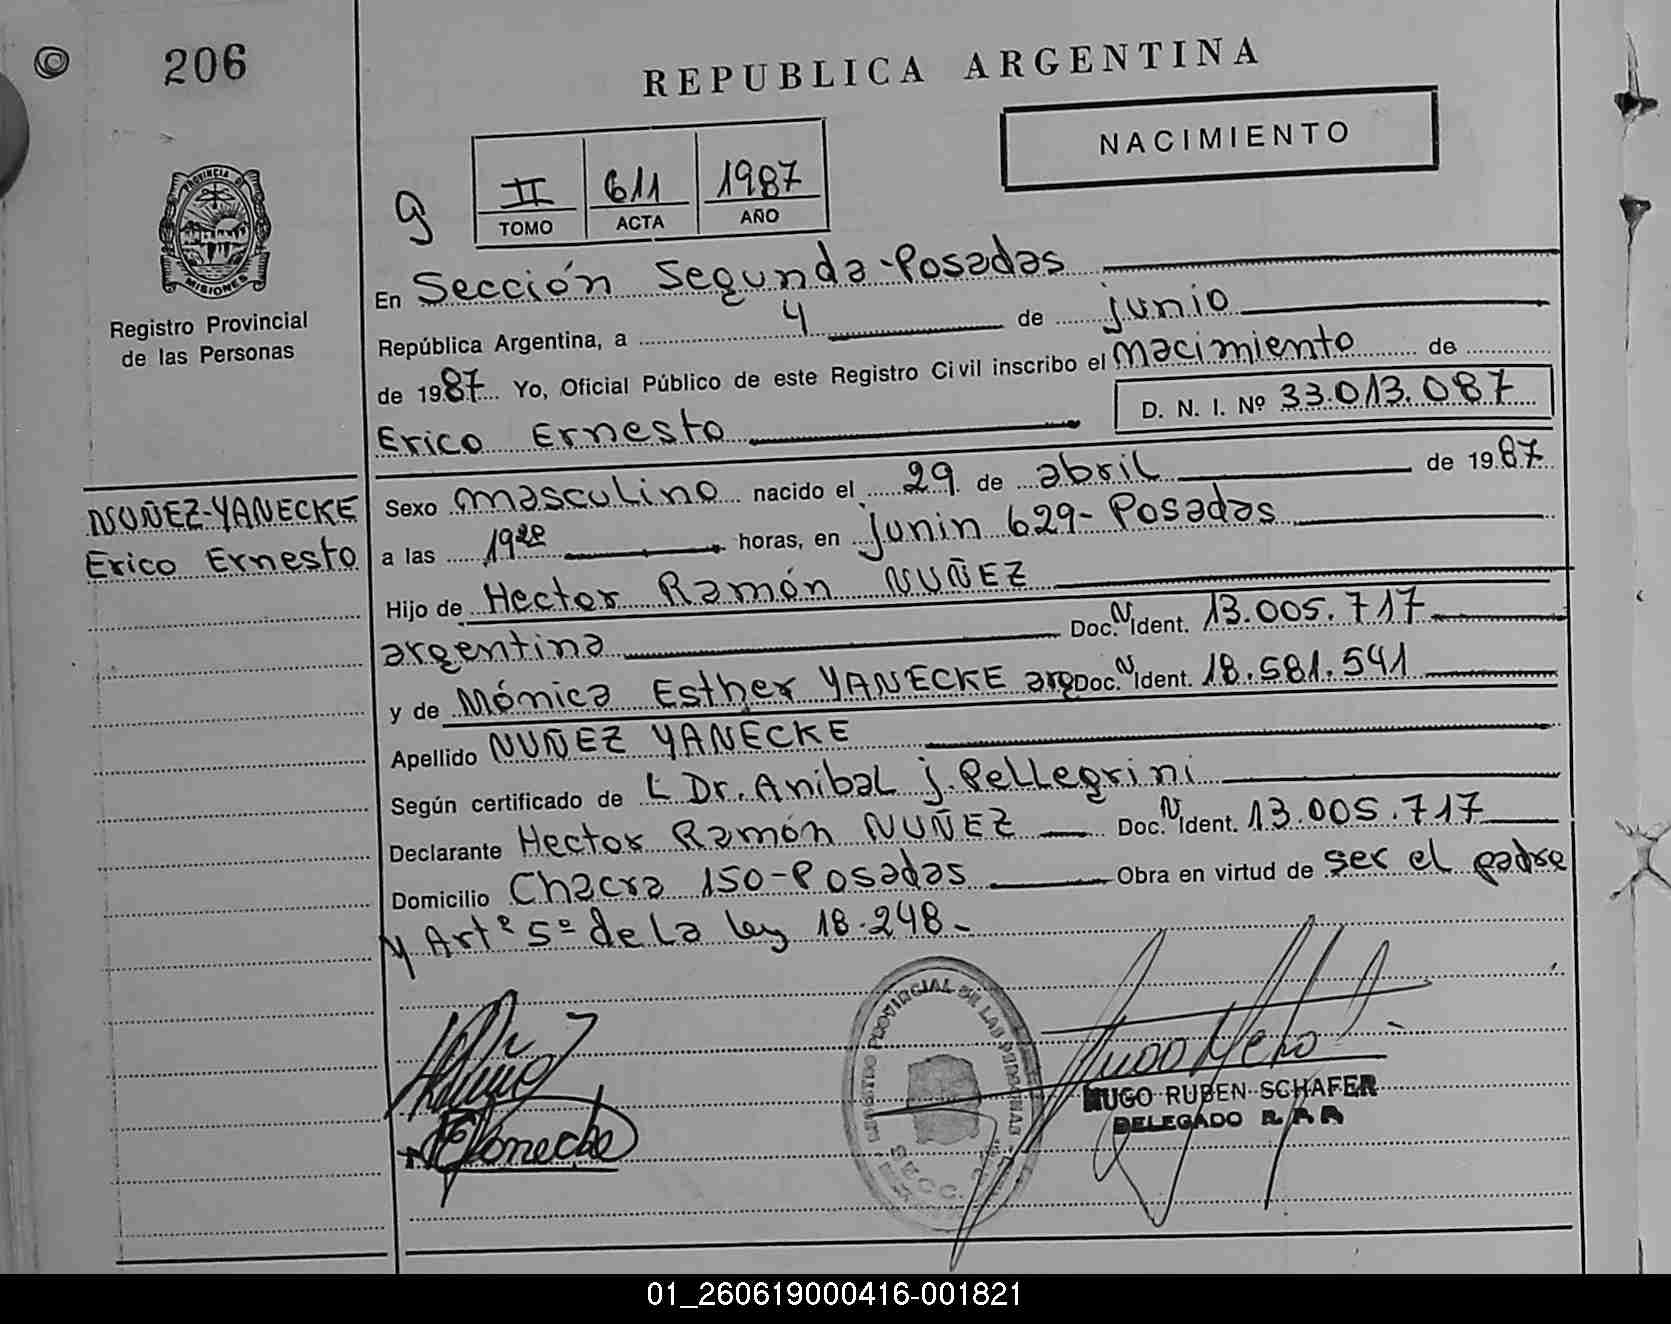 206
REPUBLICA ARGENTINA
NACIMIENTO
PROVINCIA DE
MISIONES
Registro Provincial
de las Personas
9
II 611 1987
TOMO ACTA AÑO
En Sección Segunda-Posadas
República Argentina, a 4 de junio
de 1987 Yo, Oficial Público de este Registro Civil inscribo el nacimiento de
D. N. I. Nº 33.013.087
Erico Ernesto
NUÑEZ-YANECKE
Erico Ernesto
Sexo masculino nacido el 29 de abril de 1987
a las 19²⁰ horas, en junin 629-Posadas
Hijo de Hector Ramón NUÑEZ
argentina Doc. N Ident. 13.005.717
y de Mónica Esther YANECKE arg Doc. N Ident. 18.581.541
Apellido NUÑEZ YANECKE
Según certificado de L Dr. Anibal j. Pellegrini
Declarante Hector Ramón NUÑEZ Doc. N Ident. 13.005.717
Domicilio Chacra 150-Posadas Obra en virtud de ser el padre
y Artº 5º de la ley 18.248.-
PROVINCIAL DE LAS PERSONAS
SECC.
HUGO RUBEN SCHAFER
DELEGADO
01_260619000416-001821